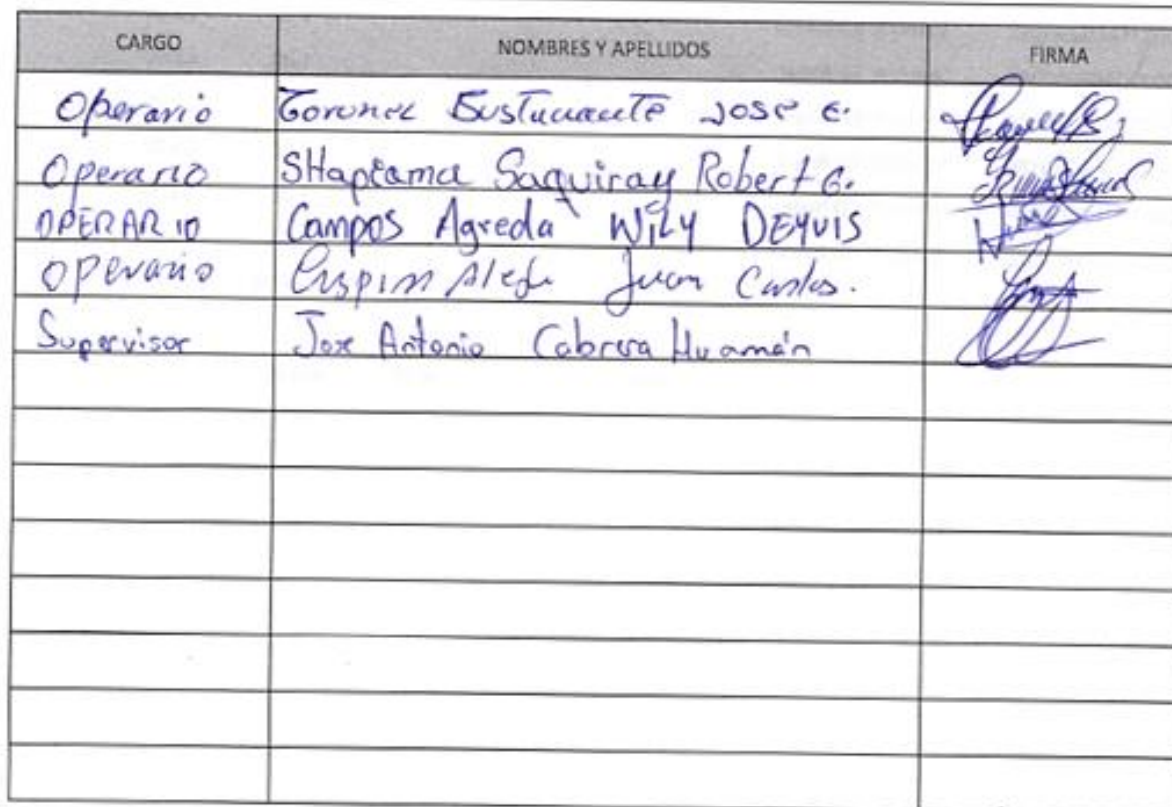 CARGO NOMBRES Y APELLIDOS FIRMA
Operario Coronel Bustamante Jose E.
Operario SHapiama Saquiray Robert G.
OPERARIO Campos Agreda WiLY DEYVIS
Operario Crispin Juan Carlos.
Supervisor Jose Antonio Cabrera Huamán